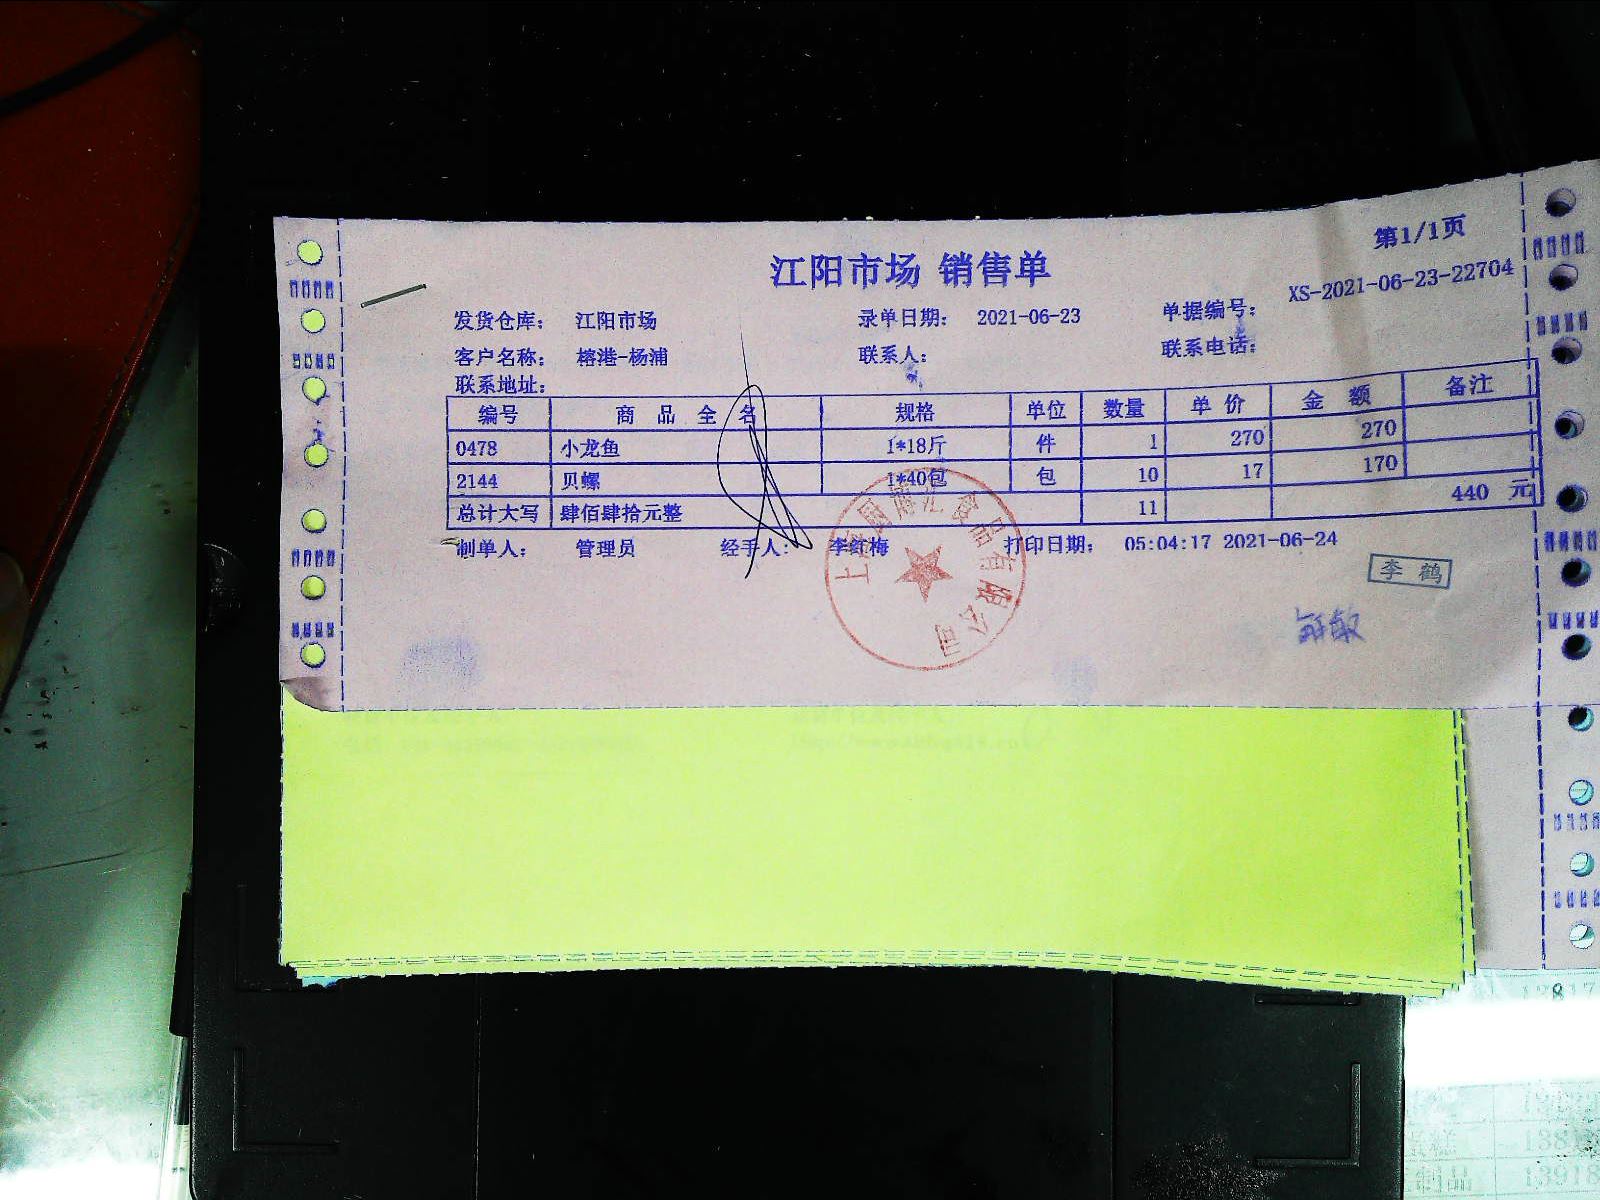 第1/1页
江阳市场 销售单
发货仓库： 江阳市场 录单日期： 2021-06-23 单据编号： XS-2021-06-23-22704
客户名称： 榕港-杨浦 联系人： 联系电话：
联系地址：
编号 商品全名 规格 单位 数量 单价 金额 备注
0478 小龙鱼 1*18斤 件 1 270 270
2144 贝螺 1*40包 包 10 17 170
总计大写 肆佰肆拾元整 11 440 元
制单人： 管理员 经手人： 李红梅 打印日期： 05:04:17 2021-06-24
李鹤
食品有限公司